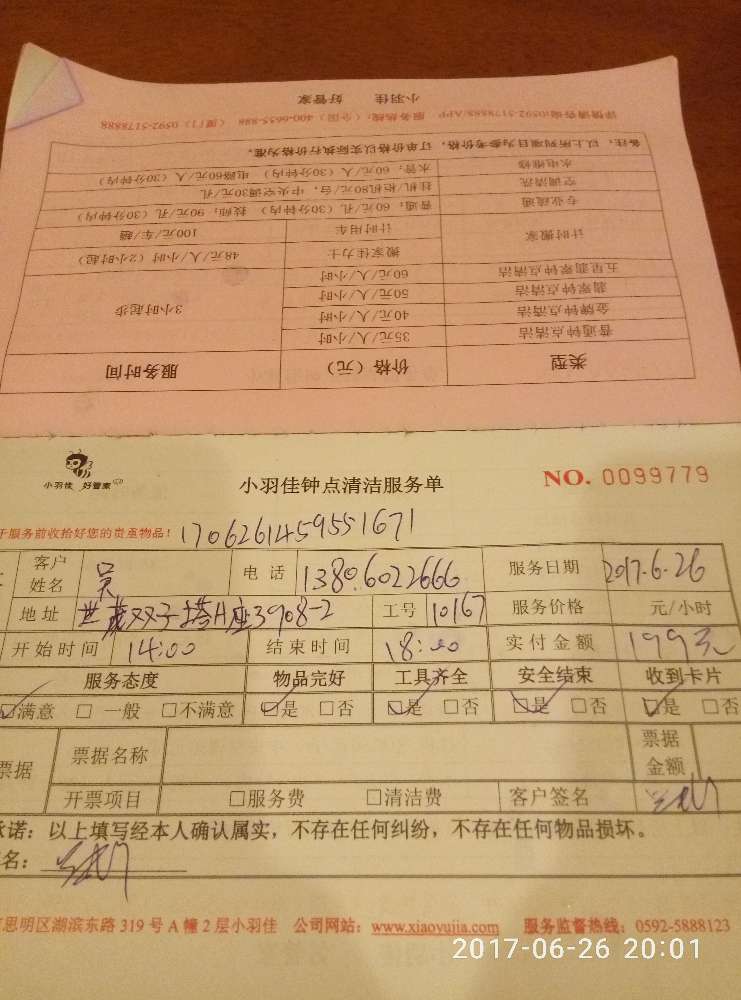 小羽佳 好管家
详情请咨询0592-5178888/APP 服务热线：（全国）400-6655-888 （厦门）0592-5178888
备注：以上所列项目为参考价格，订单价格以实际执行价格为准。
水电维修 水管：60元/人（30分钟内） 电路60元/人（30分钟内）
空调清洗 挂机/柜机80元/台，中央空调30元/孔
专业疏通 普通：60元/孔（30分钟内） 技师：90元/孔（30分钟内）
计时搬家 计时用车 100元/车/趟
搬家佳力士 48元/人/小时（2小时起）
五星翡翠钟点清洁 60元/人/小时 3小时起步
翡翠钟点清洁 50元/人/小时
金牌钟点清洁 40元/人/小时
普通钟点清洁 35元/人/小时
类型 价格（元） 服务时间
小羽佳 好管家
小羽佳钟点清洁服务单 NO. 0099779
于服务前收拾好您的贵重物品！ 1706261459551671
客户姓名 吴 电话 13806022666 服务日期 2017.6.26
地址 世茂双子塔A座3908-2 工号 10167 服务价格 元/小时
开始时间 14:00 结束时间 18:00 实付金额 199元
服务态度 物品完好 工具齐全 安全结束 收到卡片
☑满意 □一般 □不满意 ☑是 □否 ☑是 □否 ☑是 □否 ☑是 □否
票据 票据名称 票据金额
开票项目 □服务费 □清洁费 客户签名
承诺：以上填写经本人确认属实，不存在任何纠纷，不存在任何物品损坏。
名：
思明区湖滨东路319号A幢2层小羽佳 公司网站：www.xiaoyujia.com 服务监督热线：0592-5888123
2017-06-26 20:01